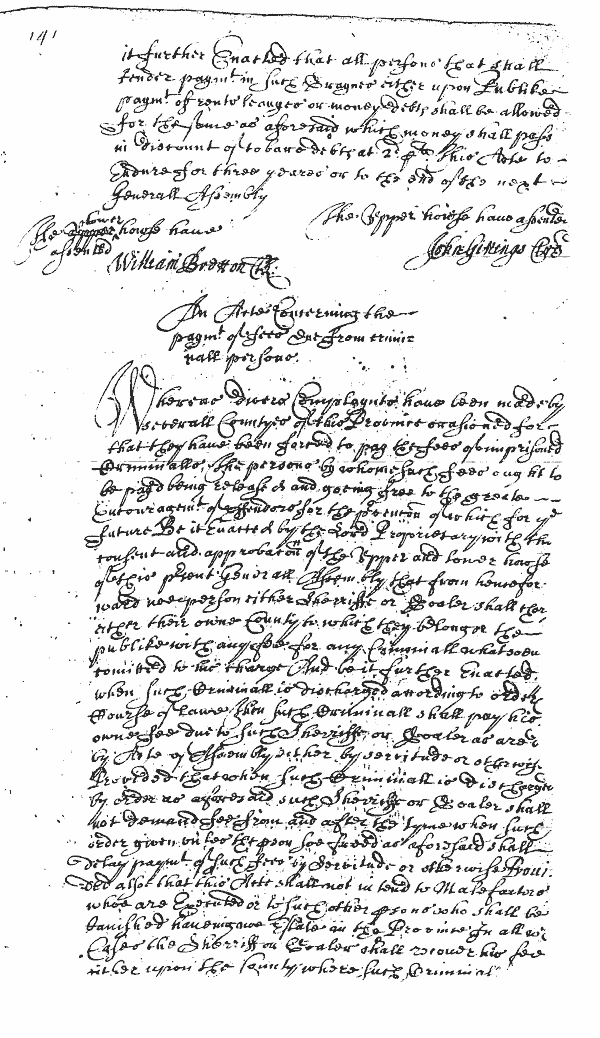 141
it further Enacted that all persons that shall
tender paymt in such Dragnes either upon Publike
paymt of rents leauyes or money debts shall be allowed
for the same as aforesaid which money shall passe
in discount of tobacc debt at 2d p this Acte to
Endure for three yeares or to the end of the next
Generall Assembly
The lower house have
assented
William Bretton Clk
The Vpper howse have assented
John Gittings Clk
An Acte Concerning the
paymt of ffees due from crimi
nall persons.
Whereas divers Complaynts have been made by
severall Countyes of this Province ocasioned for
that they have been forced to pay the ffees of imprisoned
Criminalls, the persons by whome such ffees ought to
be payd being released and goeing free to the greate
Encouragemt of offendors for the prevencon of which for ye
future Be it Enacted by the Lord Proprietary with the
consent and approbacon of the Vpper and lower howse
of this prsent Generall Assembly that from hencefor
ward noe person either Sherriffe or Goaler shall
either their owne County to which they belong or the
publike with any ffee for any Criminall whatsoeu
comitted to his charge And be it further Enacted
when such Criminall is discharged according to order
Course of Lawe then such Criminall shall pay his
owne ffee due to such Sherriffe or Goaler as
by Acte of Assembly either by servitude or otherwise
Provided that when such Criminall is discharged
by order as aforesaid such Sherriffe or Goaler shall
not demand ffee from and after the tyme when such
order given unles the prson soe freed as aforesaid shall
delay paymt of such ffees by servitude or otherwise Proui
ded also that this Acte shall not intend to Malefactors
whoe are Executed or to such other prsons who shall be
banished haveing noe Estate in the Province In all wch
Cases the Sherriff or Goaler shall recover his ffee
either upon the County where such Criminal